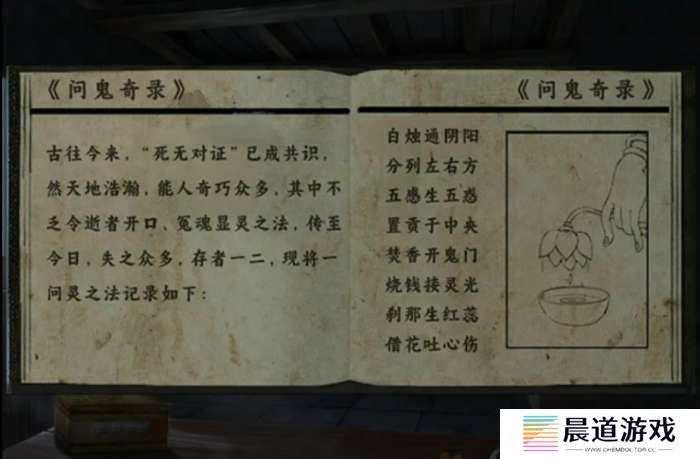 《问鬼奇录》
古往今来，“死无对证”已成共识，
然天地浩瀚，能人奇巧众多，其中不
乏令逝者开口、冤魂显灵之法，传至
今日，失之众多，存者一二，现将一
问灵之法记录如下：
《问鬼奇录》
白烛通阴阳
分列左右方
五感生五惑
置贡于中央
焚香开鬼门
烧钱接灵光
刹那生红蕊
借花吐心伤
晨道游戏
WWW.CHEMDOCTOR.CC